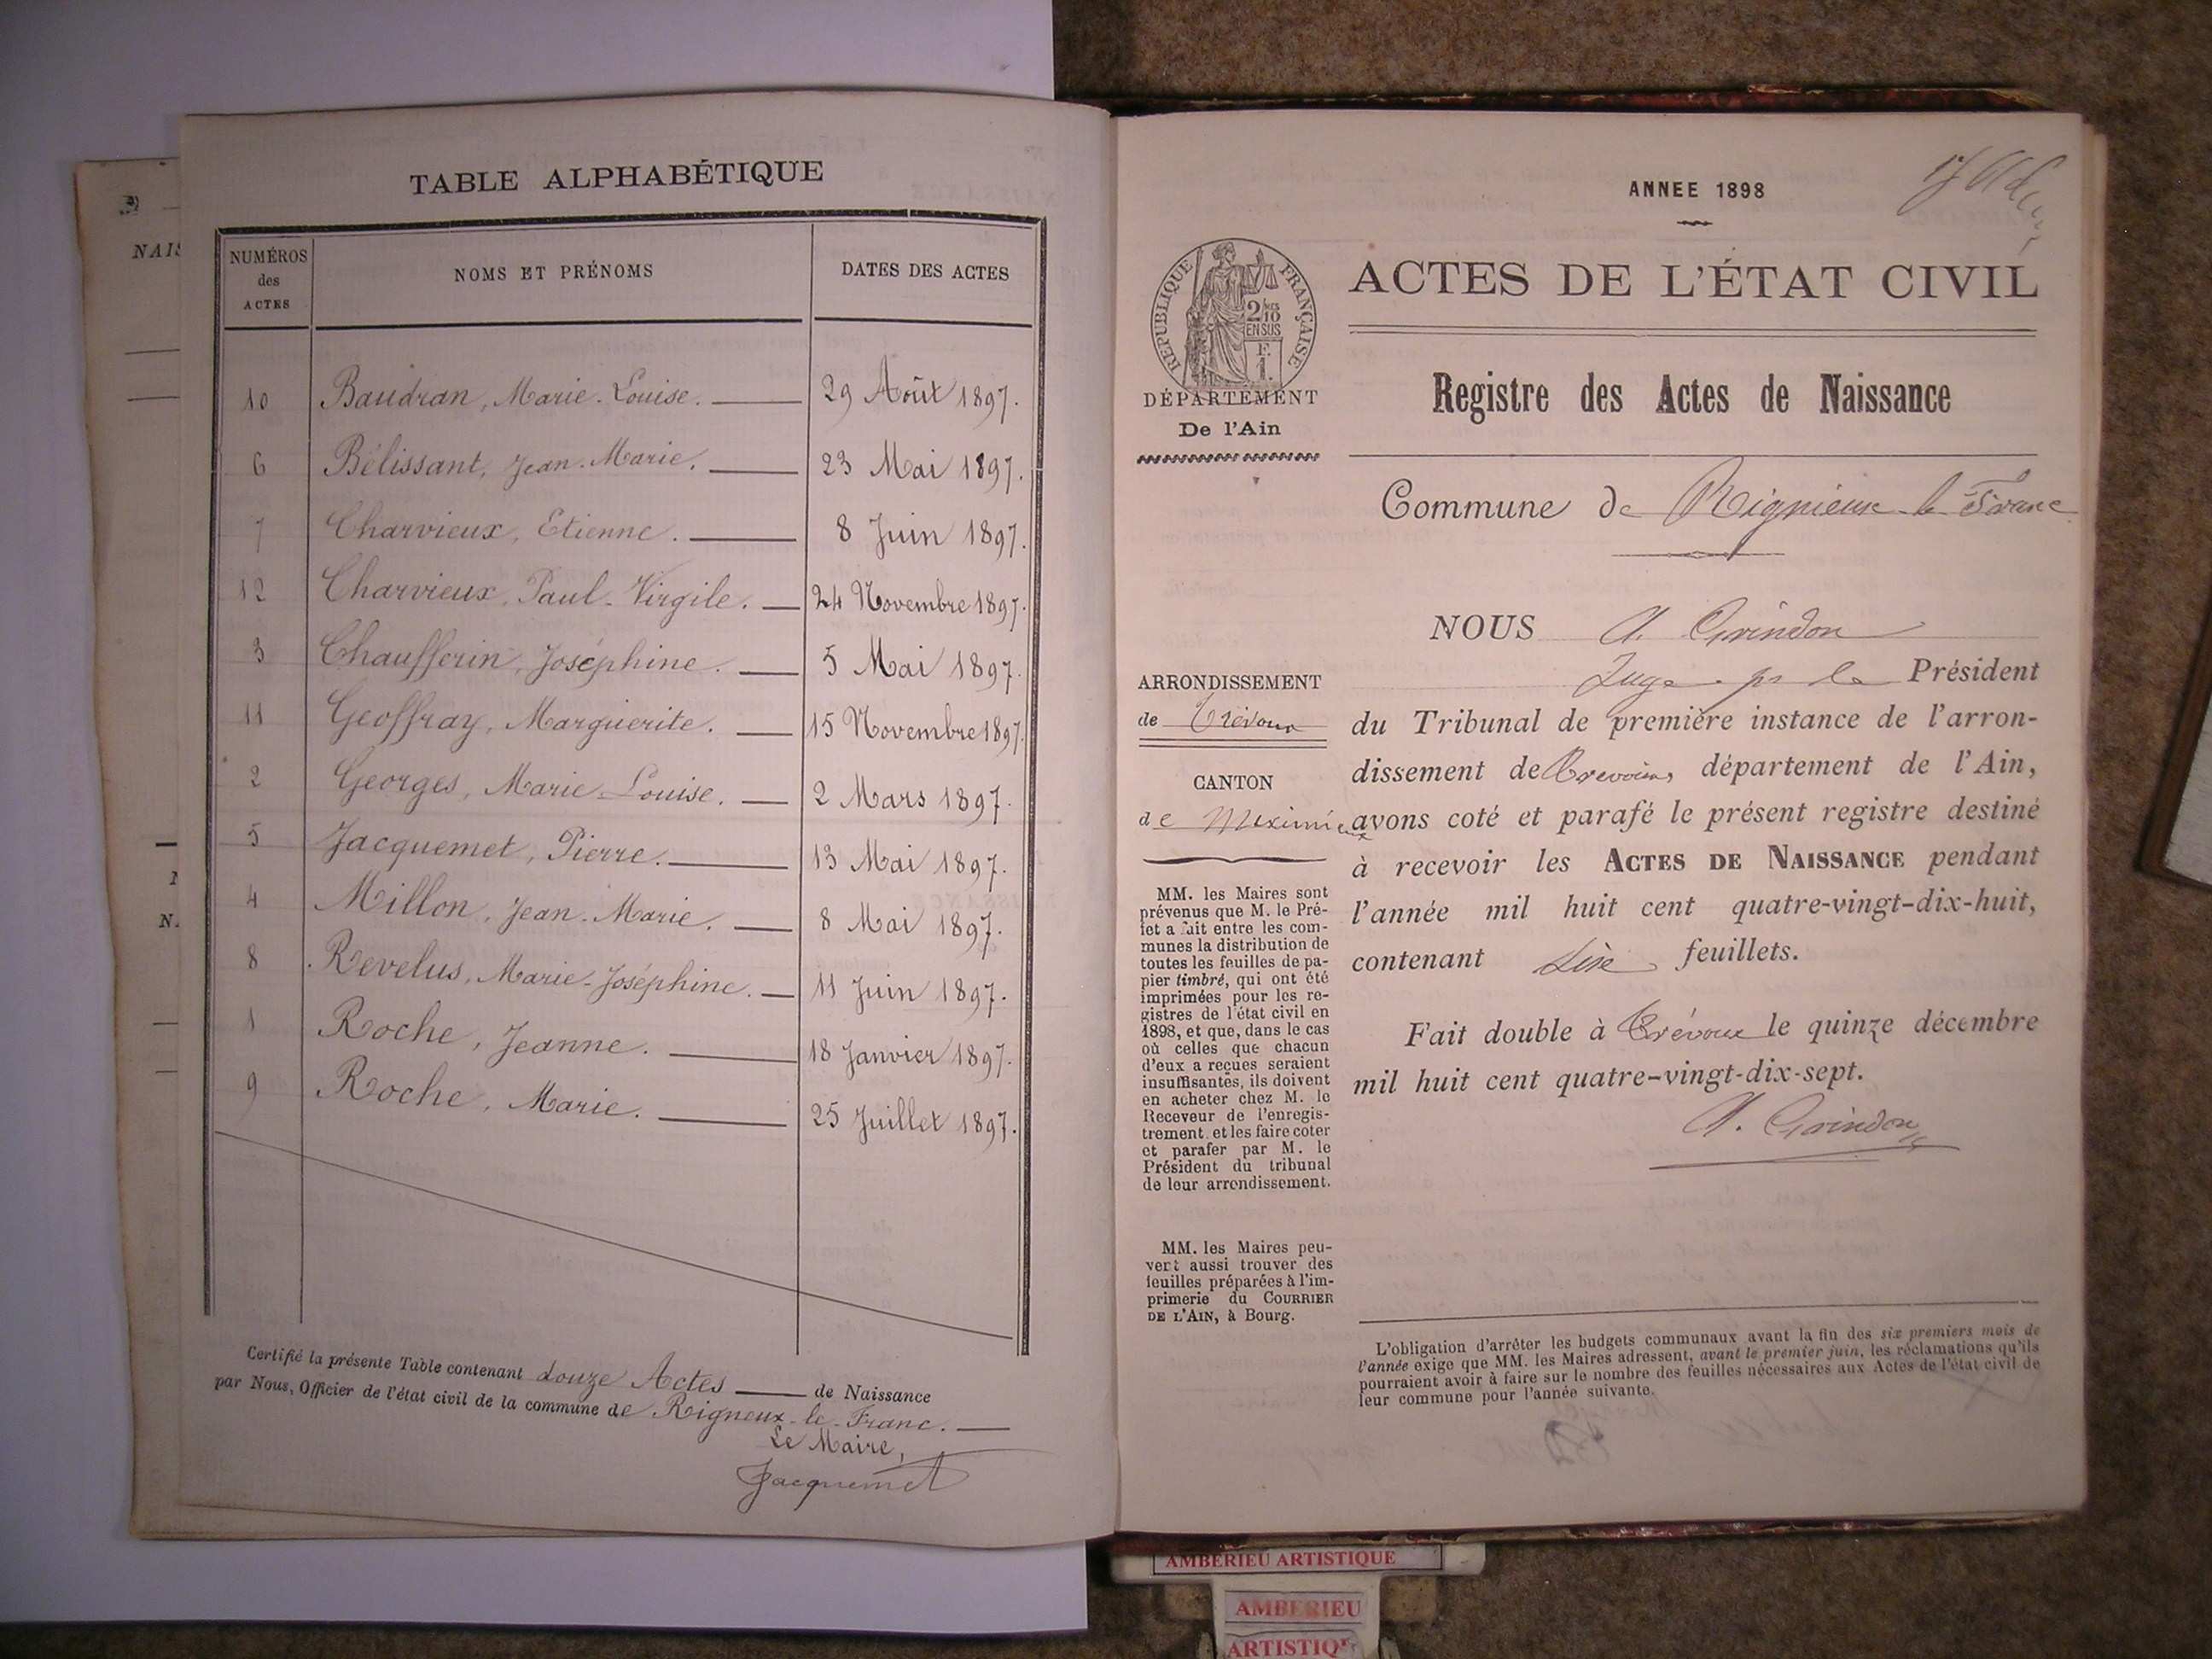 NAIS
N.
TABLE ALPHABÉTIQUE
NUMÉROS des ACTES NOMS ET PRÉNOMS DATES DES ACTES
10 Baudran, Marie-Louise. 29 Août 1897.
6 Bélissant, Jean-Marie. 23 Mai 1897.
7 Charvieux, Etienne. 8 Juin 1897.
12 Charvieux, Paul-Virgile. 24 Novembre 1897.
3 Chaufferin, Joséphine. 5 Mai 1897.
11 Geoffray, Marguerite. 15 Novembre 1897.
2 Georges, Marie-Louise. 2 Mars 1897.
5 Jacquemet, Pierre. 13 Mai 1897.
4 Millon, Jean-Marie. 8 Mai 1897.
8 Revelus, Marie-Joséphine. 11 Juin 1897.
1 Roche, Jeanne. 18 Janvier 1897.
9 Roche, Marie. 25 Juillet 1897.
Certifié la présente Table contenant douze Actes de Naissance
par Nous, Officier de l'état civil de la commune de Rigneux-le-Franc.
Le Maire,
Jacquemet
ANNEE 1898
RÉPUBLIQUE FRANÇAISE
2/10
EN SUS
F.
1.
DÉPARTEMENT
De l'Ain
ARRONDISSEMENT
de Trévoux
CANTON
de Meximieux
MM. les Maires sont
prévenus que M. le Pré-
fet a fait entre les com-
munes la distribution de
toutes les feuilles de pa-
pier timbré, qui ont été
imprimées pour les re-
gistres de l'état civil en
1898, et que, dans le cas
où celles que chacun
d'eux a reçues seraient
insuffisantes, ils doivent
en acheter chez M. le
Receveur de l'enregis-
trement et les faire coter
et parafer par M. le
Président du tribunal
de leur arrondissement.
MM. les Maires peu-
vent aussi trouver des
feuilles préparées à l'im-
primerie du COURRIER
DE L'AIN, à Bourg.
ACTES DE L'ÉTAT CIVIL
Registre des Actes de Naissance
Commune de Rignieux-le-Franc
NOUS A. Grindon
Juge pr le Président
du Tribunal de première instance de l'arron-
dissement de Trevoux, département de l'Ain,
avons coté et parafé le présent registre destiné
à recevoir les ACTES DE NAISSANCE pendant
l'année mil huit cent quatre-vingt-dix-huit,
contenant feuillets.
Fait double à Trévoux le quinze décembre
mil huit cent quatre-vingt-dix-sept.
A. Grindon
L'obligation d'arrêter les budgets communaux avant la fin des six premiers mois de
l'année exige que MM. les Maires adressent, avant le premier juin, les réclamations qu'ils
pourraient avoir à faire sur le nombre des feuilles nécessaires aux Actes de l'état civil de
leur commune pour l'année suivante.
AMBERIEU ARTISTIQUE
AMBERIEU
ARTISTIQUE